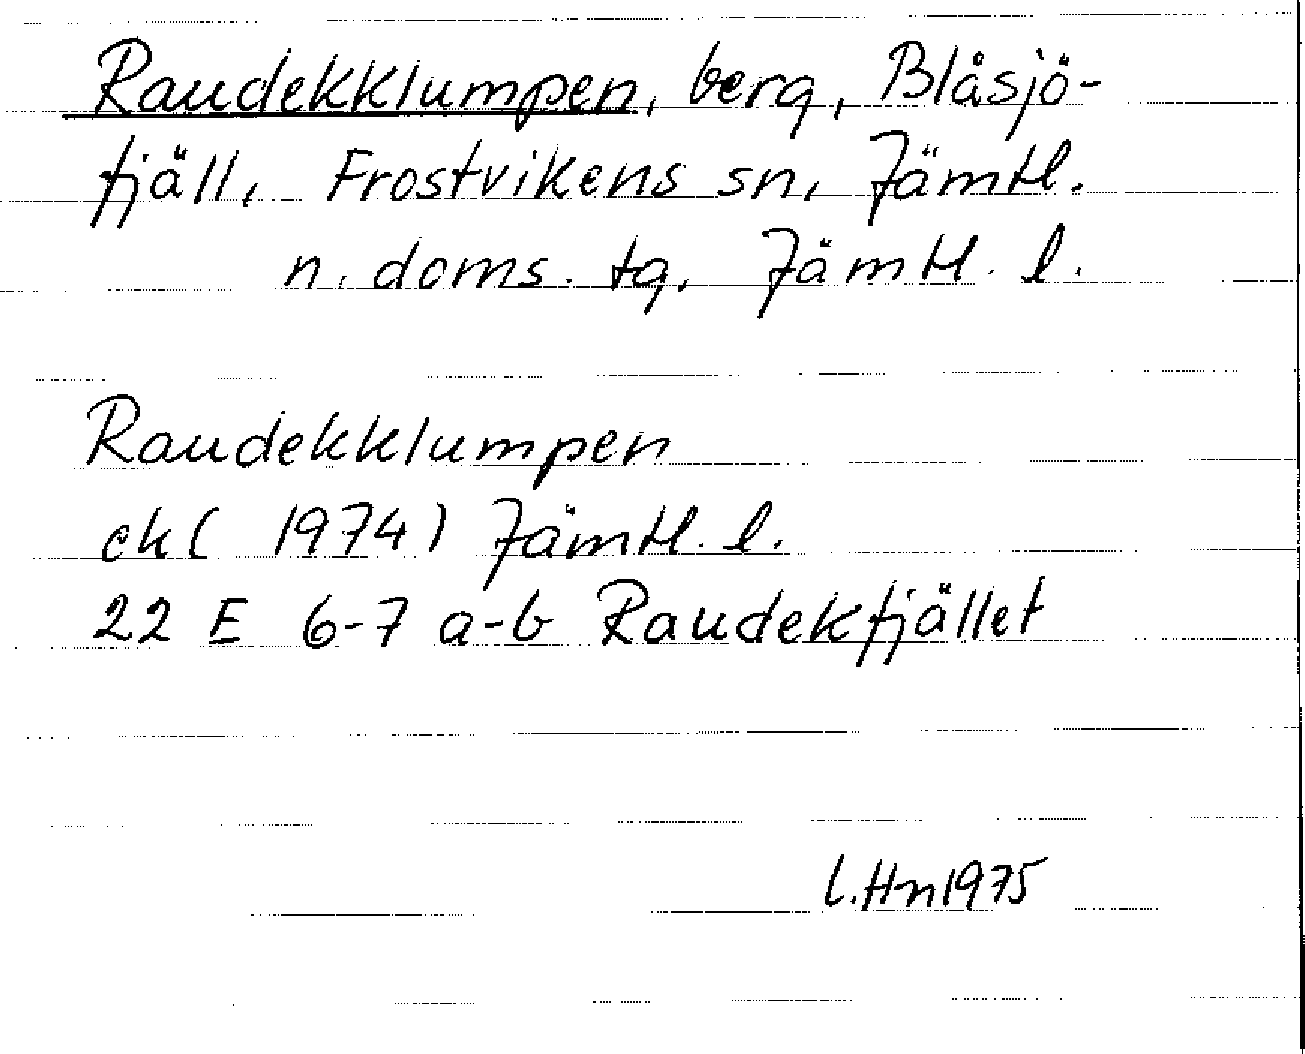 Raudekklumpen, berg, Blåsjö-
fjäll, Frostvikens sn, Jämtl.
n. doms. tg, Jämtl. l.
Raudekklumpen
ek ( 1974) Jämtl. l.
22 E 6-7 a-b Raudekfjället
l. Hn 1975